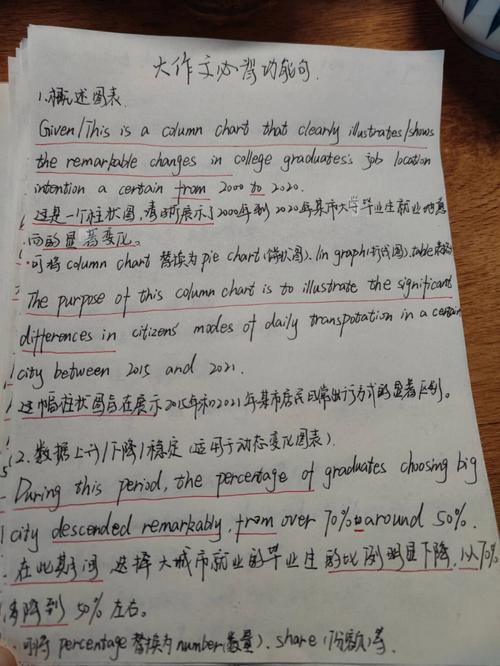 大作文必背功能句.
1.概述图表.
Given/This is a column chart that clearly illustrates/shows
the remarkable changes in college graduates's job location
intention a certain from 2000 to 2020.
这是一个柱状图,清晰展示了2000年到2020年某市大学毕业生就业地意
向的显著变化。
可将column chart 替换为pie chart(饼状图). lin graph(折线图). table
The purpose of this column chart is to illustrate the significant
differences in citizens' modes of daily transpotation in a certain
city between 2015 and 2021.
这幅柱状图旨在展示2015年和2021年某市居民日常出行方式的显著区别。
(2. 数据上升/下降/稳定(适用于动态变化图表).
During this period, the percentage of graduates choosing big
city descended remarkably, from over 70% to around 50%.
在此期间 选择大城市就业的毕业生的比例明显下降,从70%
多降到50%左右。
可将percentage替换为number(数量)、share(份额)等.